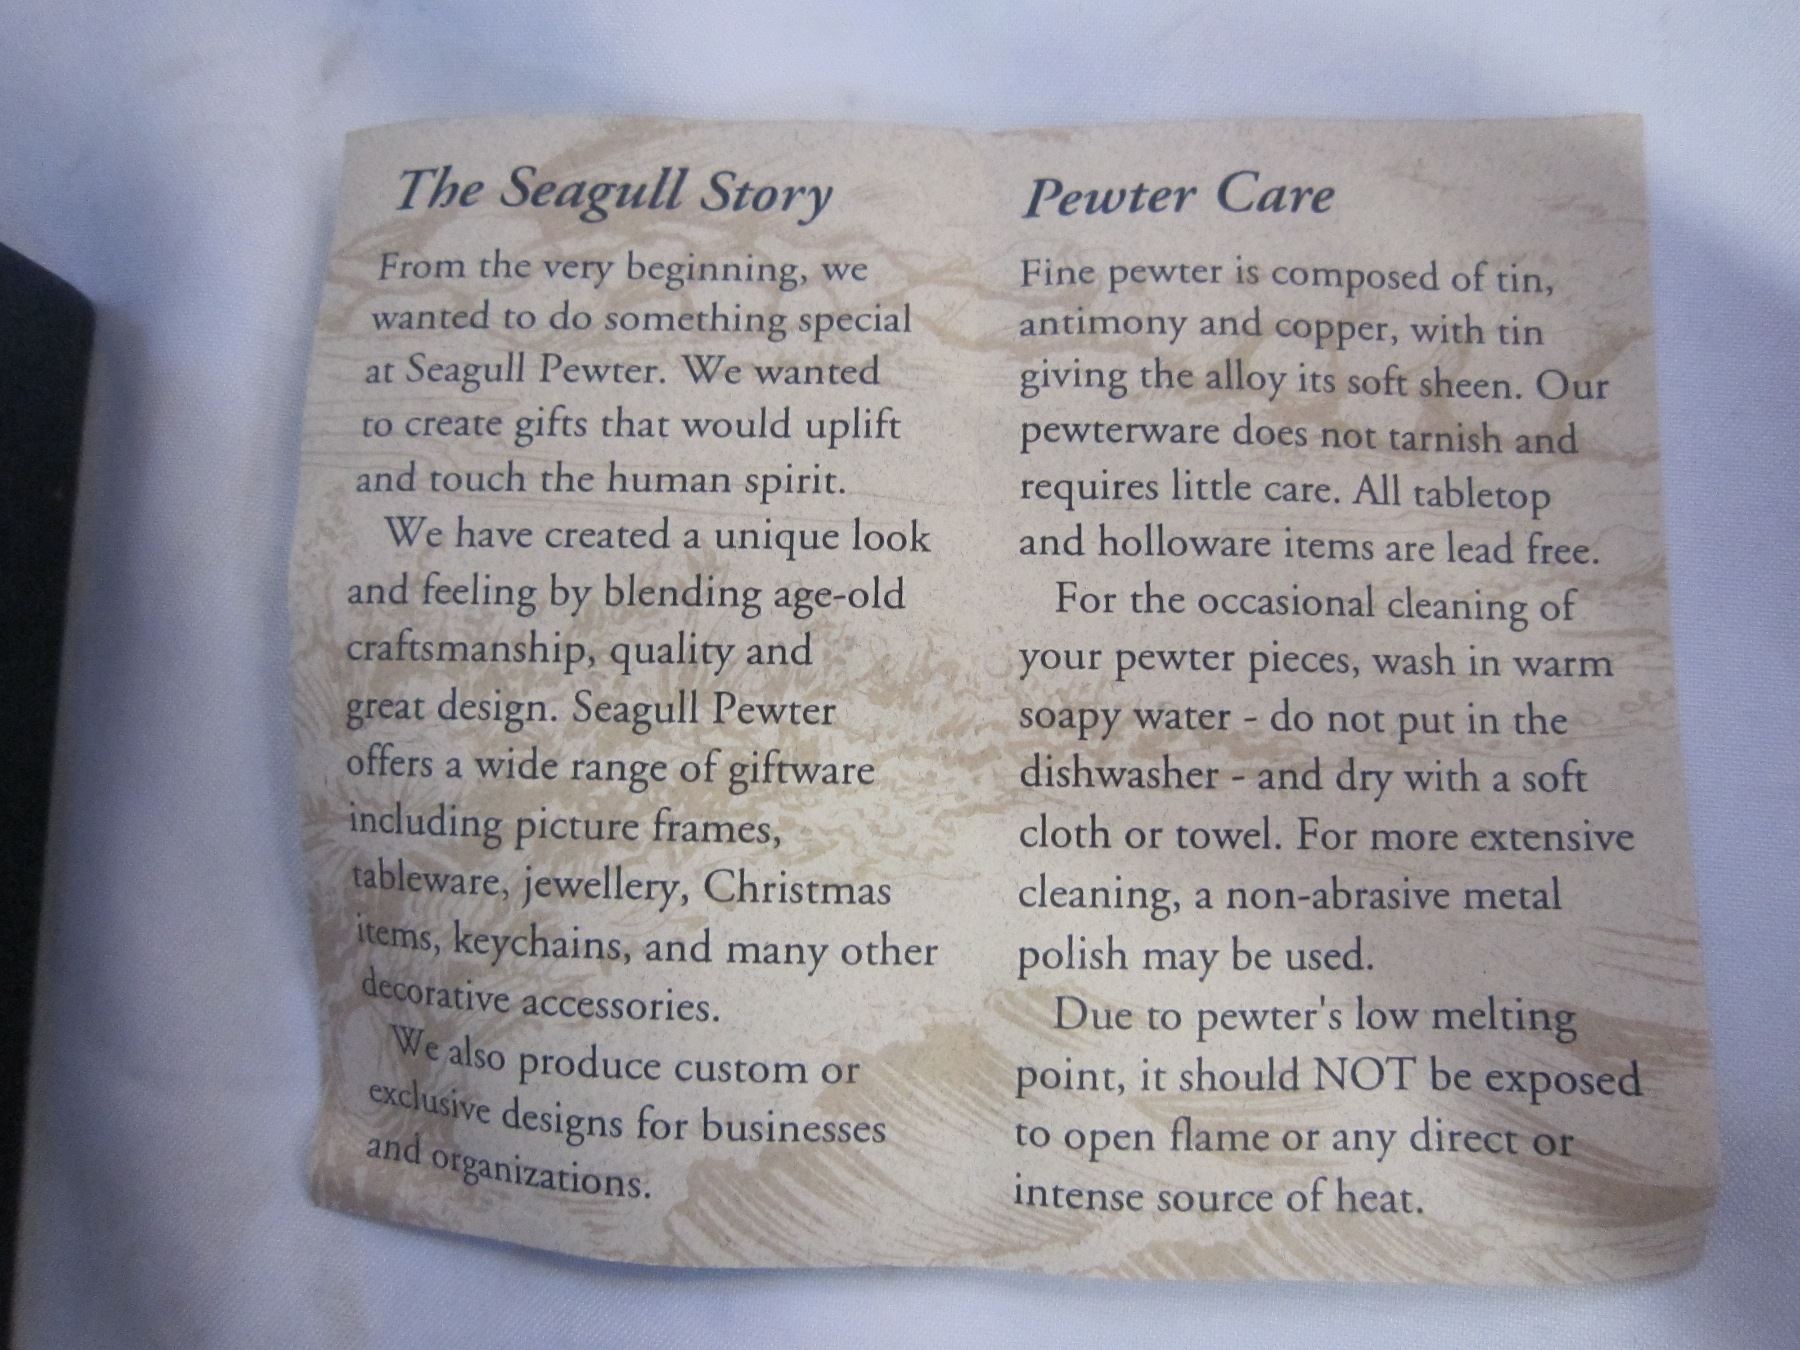 The Seagull Story
From the very beginning, we
wanted to do something special
at Seagull Pewter. We wanted
to create gifts that would uplift
and touch the human spirit.
We have created a unique look
and feeling by blending age-old
craftsmanship, quality and
great design. Seagull Pewter
offers a wide range of giftware
including picture frames,
tableware, jewellery, Christmas
items, keychains, and many other
decorative accessories.
We also produce custom or
exclusive designs for businesses
and organizations.
Pewter Care
Fine pewter is composed of tin,
antimony and copper, with tin
giving the alloy its soft sheen. Our
pewterware does not tarnish and
requires little care. All tabletop
and holloware items are lead free.
For the occasional cleaning of
your pewter pieces, wash in warm
soapy water - do not put in the
dishwasher - and dry with a soft
cloth or towel. For more extensive
cleaning, a non-abrasive metal
polish may be used.
Due to pewter's low melting
point, it should NOT be exposed
to open flame or any direct or
intense source of heat.